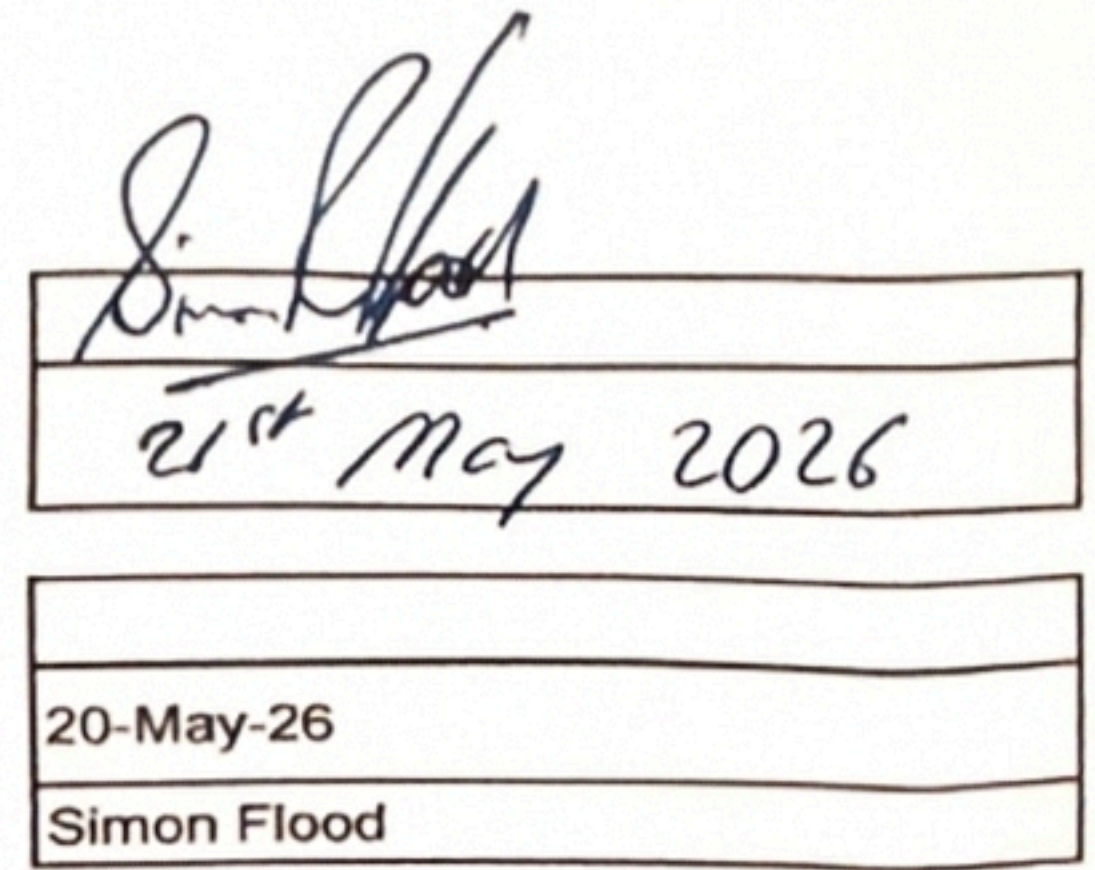 Simon Flood
21st May 2026
20-May-26
Simon Flood